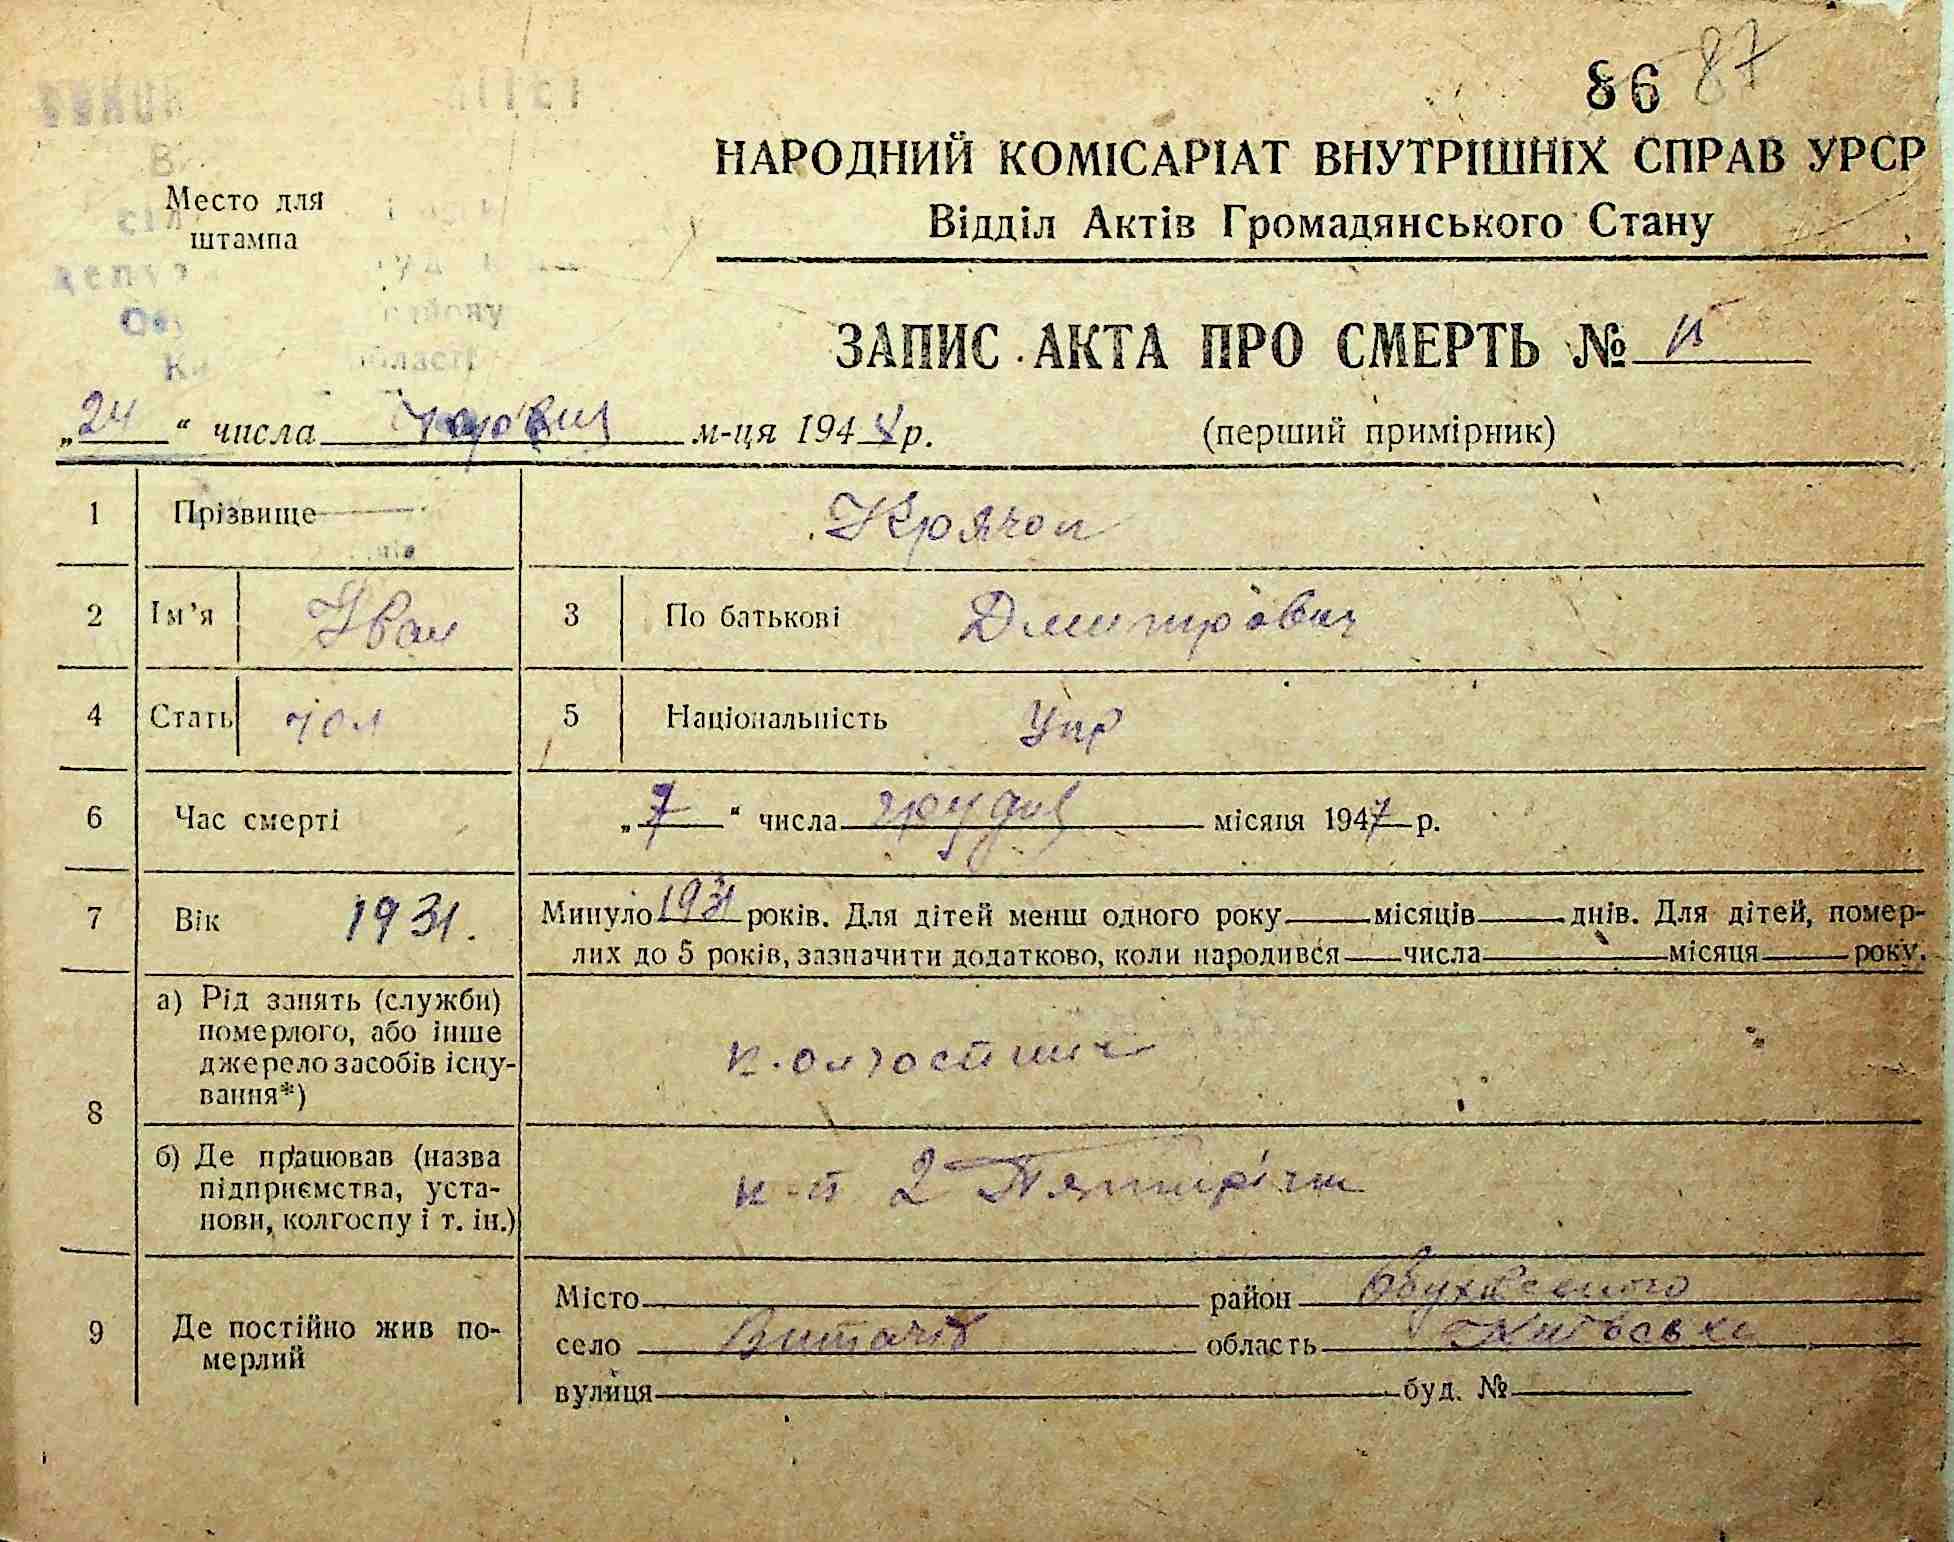 86 87
НАРОДНИЙ КОМІСАРІАТ ВНУТРІШНІХ СПРАВ УРСР
Відділ Актів Громадянського Стану
Место для
штампа
району
області
ЗАПИС АКТА ПРО СМЕРТЬ №
„24“ числа м-ця 1948 р. (перший примірник)
1 Прізвище Крячок
2 Ім'я Иван 3 По батькові Дмитрович
4 Стать чол 5 Національність Укр
6 Час смерті „7“ числа грудня місяця 1947 р.
7 Вік 1931. Минуло 1931 років. Для дітей менш одного року місяців днів. Для дітей, помер-
лих до 5 років, зазначити додатково, коли народився числа місяця року.
8 а) Рід занять (служби)
померлого, або інше
джерело засобів існу-
вання*)
колгоспник
б) Де працював (назва
підприємства, уста-
нови, колгоспу і т. ін.)
к-п 2 Пятирічки
9 Де постійно жив по-
мерлий
Місто район Обухівського
село Витачів область Київська
вулиця буд. №